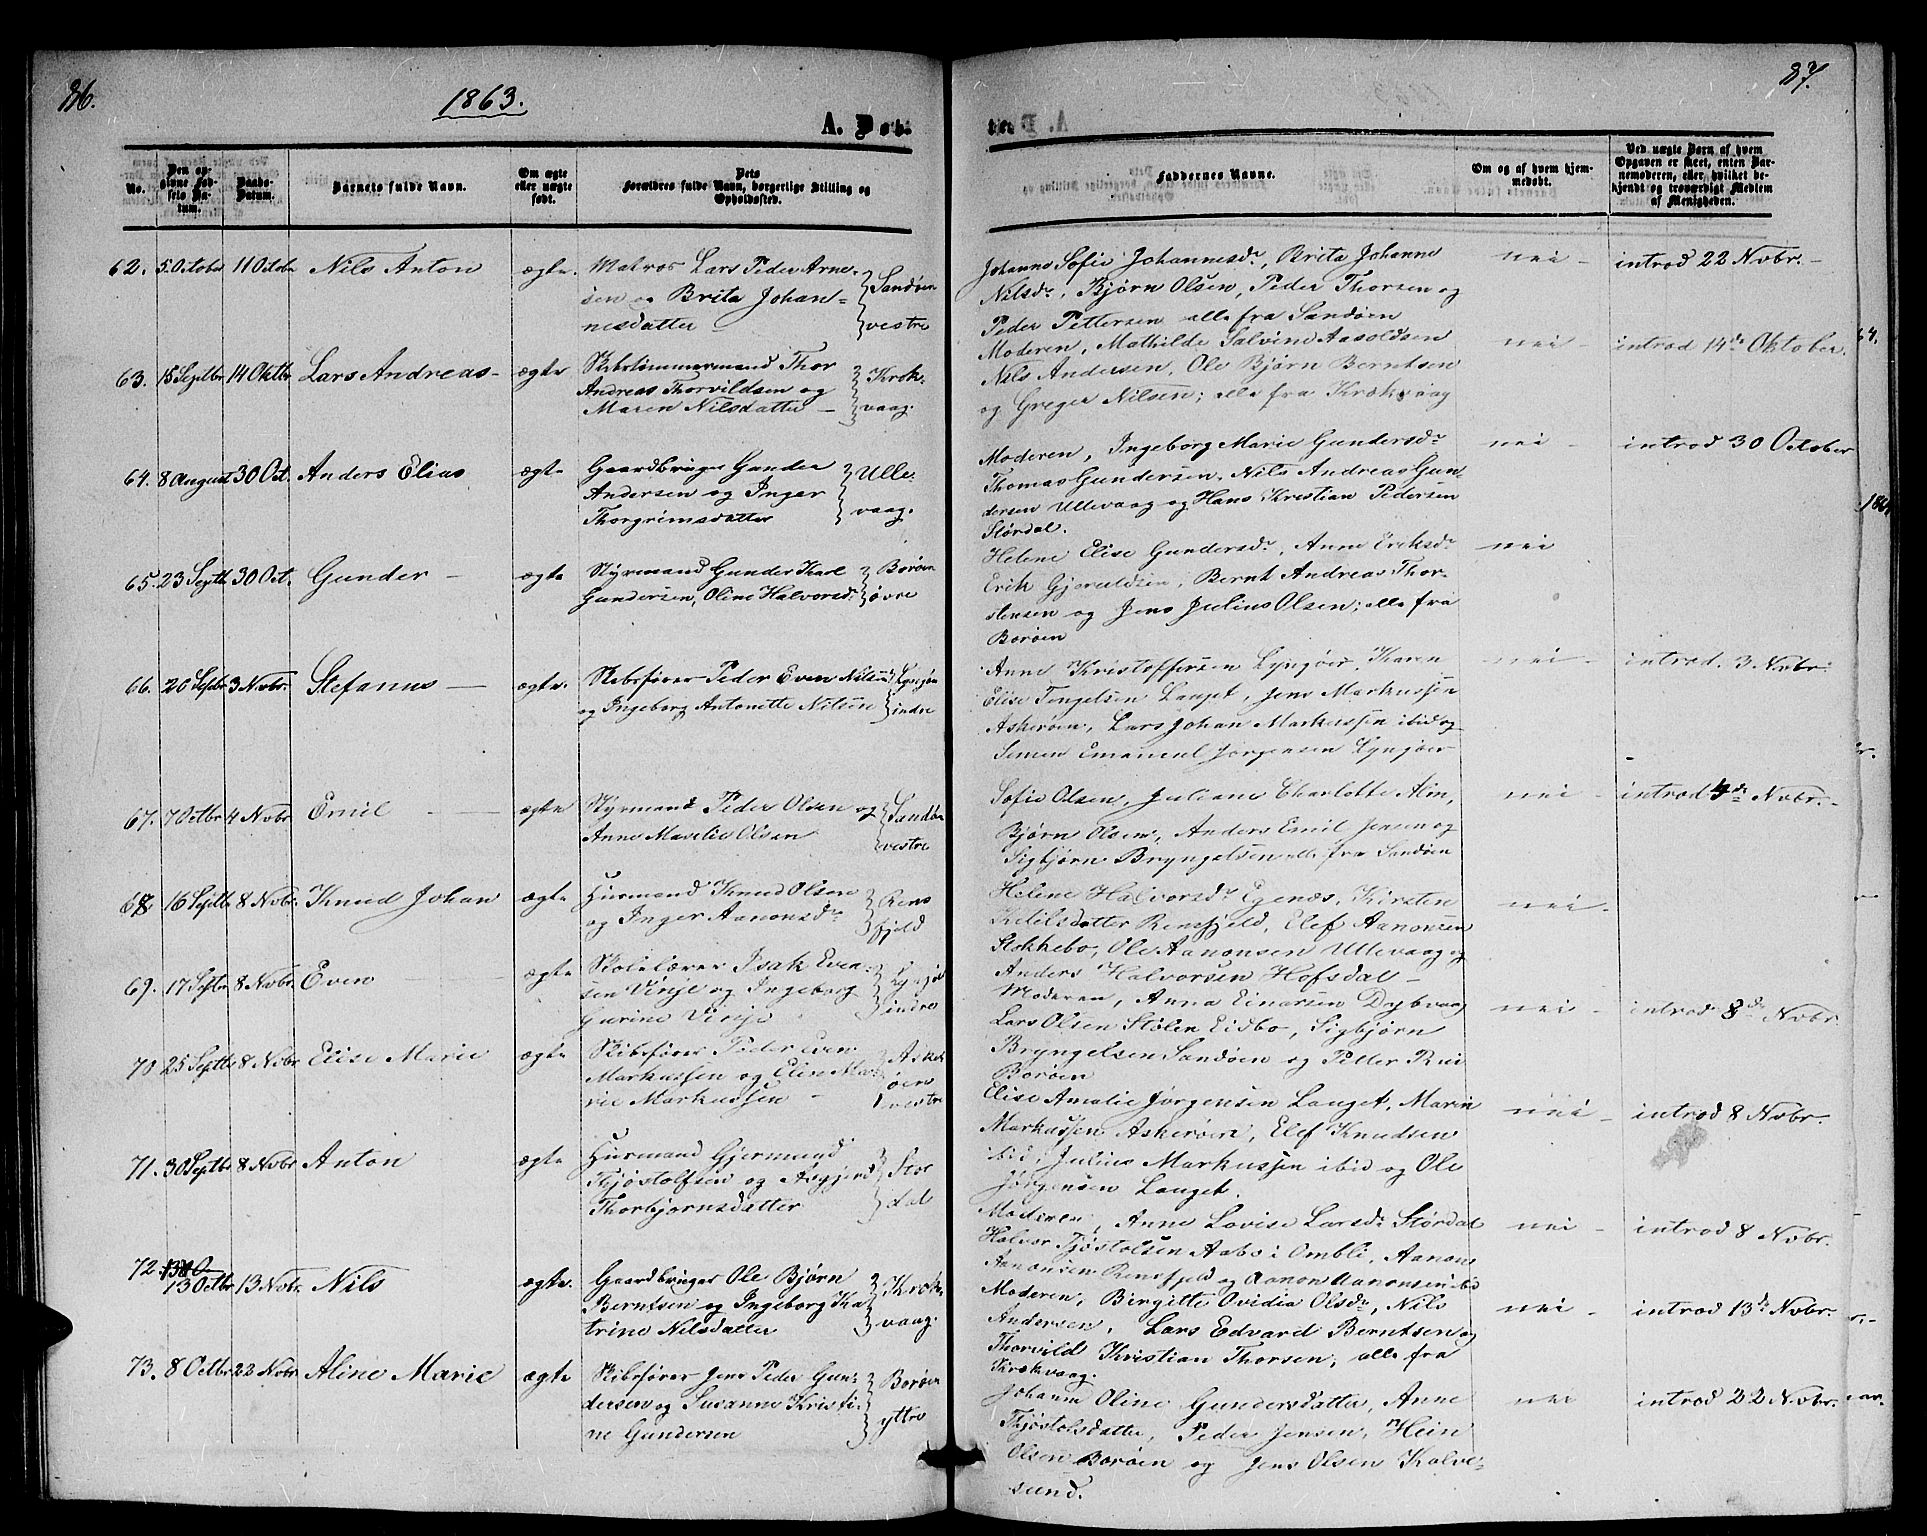 86.
1863.
A. Døb.
No.
Den opgivne Fødsels Datum.
Daabs-Datum.
Barnets fulde Navn.
Om ægte eller uægte født.
Dets Forældres fulde Navn, borgerlige Stilling og Opholdssted.
62. 5 October 11 Octobr Nils Anton ægte. Matros Lars Peder Arne-
sen og Brita Johan=
nesdatter
Sandøen
vestre
63. 15 Septbr 14 Oktbr Lars Andreas - ægte Skibstømmermand Thor
Andreas Thorvildsen og
Maren Nilsdatter -
Krok-
vaag.
64. 8 August 30 Oct. Anders Elias ægte Gaardbruger Gunder
Andersen og Inger
Thorgrimsdatter
Ulle-
vaag.
65. 23 Septb. 30 Oct. Gunder - ægte Styrmand Gunder Karl
Gundersen, Oline Halvorsdr
Borøen
øvre
66. 20 Septbr 3 Novbr. Stefanus - ægte. Skibsfører Peder Even Nilsen
og Ingeborg Antonette Nilsen
Lyngøer
indre
67. 7 Octbr 4 Novbr Emil - ægte Styrmand Peder Olsen og
Anne Matelie Olsen
Sandøen
vestre
68 16 Septbr 8 Novbr. Knud Johan ægte Husmand Knud Olsen
og Inger Aanonsdr
Rens
fjeld
69. 17 Septbr 8 Novbr Even ægte Skolelærer Isak Even-
sen Vinje og Ingeborg
Gurine Vinje
Lyngør
indre
70 25 Septbr 8 Novbr Elise Marie ægte Skibsfører Peder Even
Markussen og Elise Ma-
rie Markussen -
Asker
øen
vestre
71. 30 Septbr 8 Novbr Anton ægte Husmand Gjermund
Thjøstolfsen og Asgjerd
Thorbjørnsdatter
Stør
dal
72. 13 Octbr 13 Novbr. Nils ægte. Gaardbruger Ole Bjørn
Berntsen og Ingeborg Ka
trine Nilsdatter
Krok-
vaag.
73. 8 Octbr 22 Novbr Aline Marie ægte Skibsfører Jens Peder Gun-
dersen og Susanne Kristi-
ne Gundersen
Borøen
yttre
87.
Faddernes Navne.
Om og af hvem hjemmedøbt.
Ved uægte Børn af hvem Opgaven er skeet, enten Barnemoderen, eller hvilket bekjendt og troværdigt Medlem af Menigheden.
Johanne Sofie Johannesdr, Brita Johanne nei - introd 22 Novbr. -
Nilsdr, Bjørn Olsen, Peder Thorsen og
Peder Pettersen alle fra Sandøen
Moderen, Mathilde Salvine Aasoldsen nei - introd 14de Oktober.
Nils Andersen, Ole Bjørn Berntsen
og Greger Nilsen; alle fra Krokvaag
Moderen, Ingeborg Marie Gundersdr nei - introd 30 October
Thomas Gundersen, Nils Andreas Gun-
dersen Ullevaag og Hans Kristian Pedersen
Størdal.
Helene Elise Gundersdr, Anne Eriksdr nei
Erik Gjeruldsen, Bernt Andreas Thor-
stensen og Jens Julius Olsen; alle fra
Borøen
Anne Kristoffersen Lyngøer, Karen nei - introd. 3 Novbr.
Elise Tengelsen Lauget, Jens Markussen
Askerøen, Lars Johan Markussen ibid og
Simen Emanuel Jørgensen Lyngøer
Sofie Olsen, Juliane Charlotte Alin, nei - introd 4de Novbr. -
Bjørn Olsen, Anders Emil Jensen og
Sigbjørn Bryngelsen alle fra Sandøen
Helene Halvorsdr Egenæs, Kirsten nei -
Ketilsdatter Rensfjeld, Elef Aanonsen
Stokkebo, Ole Aanonsen Ullevaag og
Anders Halvorsen Hofsdal -
Moderen, Anna Einarsen Dybvaag nei - introd 8de Novbr.
Lars Olsen Stølen Eidbo, Sigbjørn
Bryngelsen Sandøen og Petter Rui
Borøen
Elise Amalie Jørgensen Lauget, Maren nei - introd 8 Novbr.
Markussen Askerøen, Elef Knudsen
ibid, Julius Markussen ibid og Ole
Jørgensen Lauget.
Moderen, Anne Lovise Larsdr Størdal nei - introd 8 Novbr.
Halvor Tjøstolsen Aabø i Ombli, Aanon
Aanonsen Rensfjeld og Aanon Aanonsen ibid
Moderen, Birgitte Ovidia Olsdr, Nils nei - introd 13de Novbr.
Andersen, Lars Edvard Berntsen og
Thorvild Kristian Thorsen, alle fra
Krokvaag.
Johanne Oline Gundersdatter, Anne nei - introd 22 Novbr.
Thjøstolsdatter, Peder Jensen, Hein
Olsen Borøen og Jens Olsen Kalve-
sund.